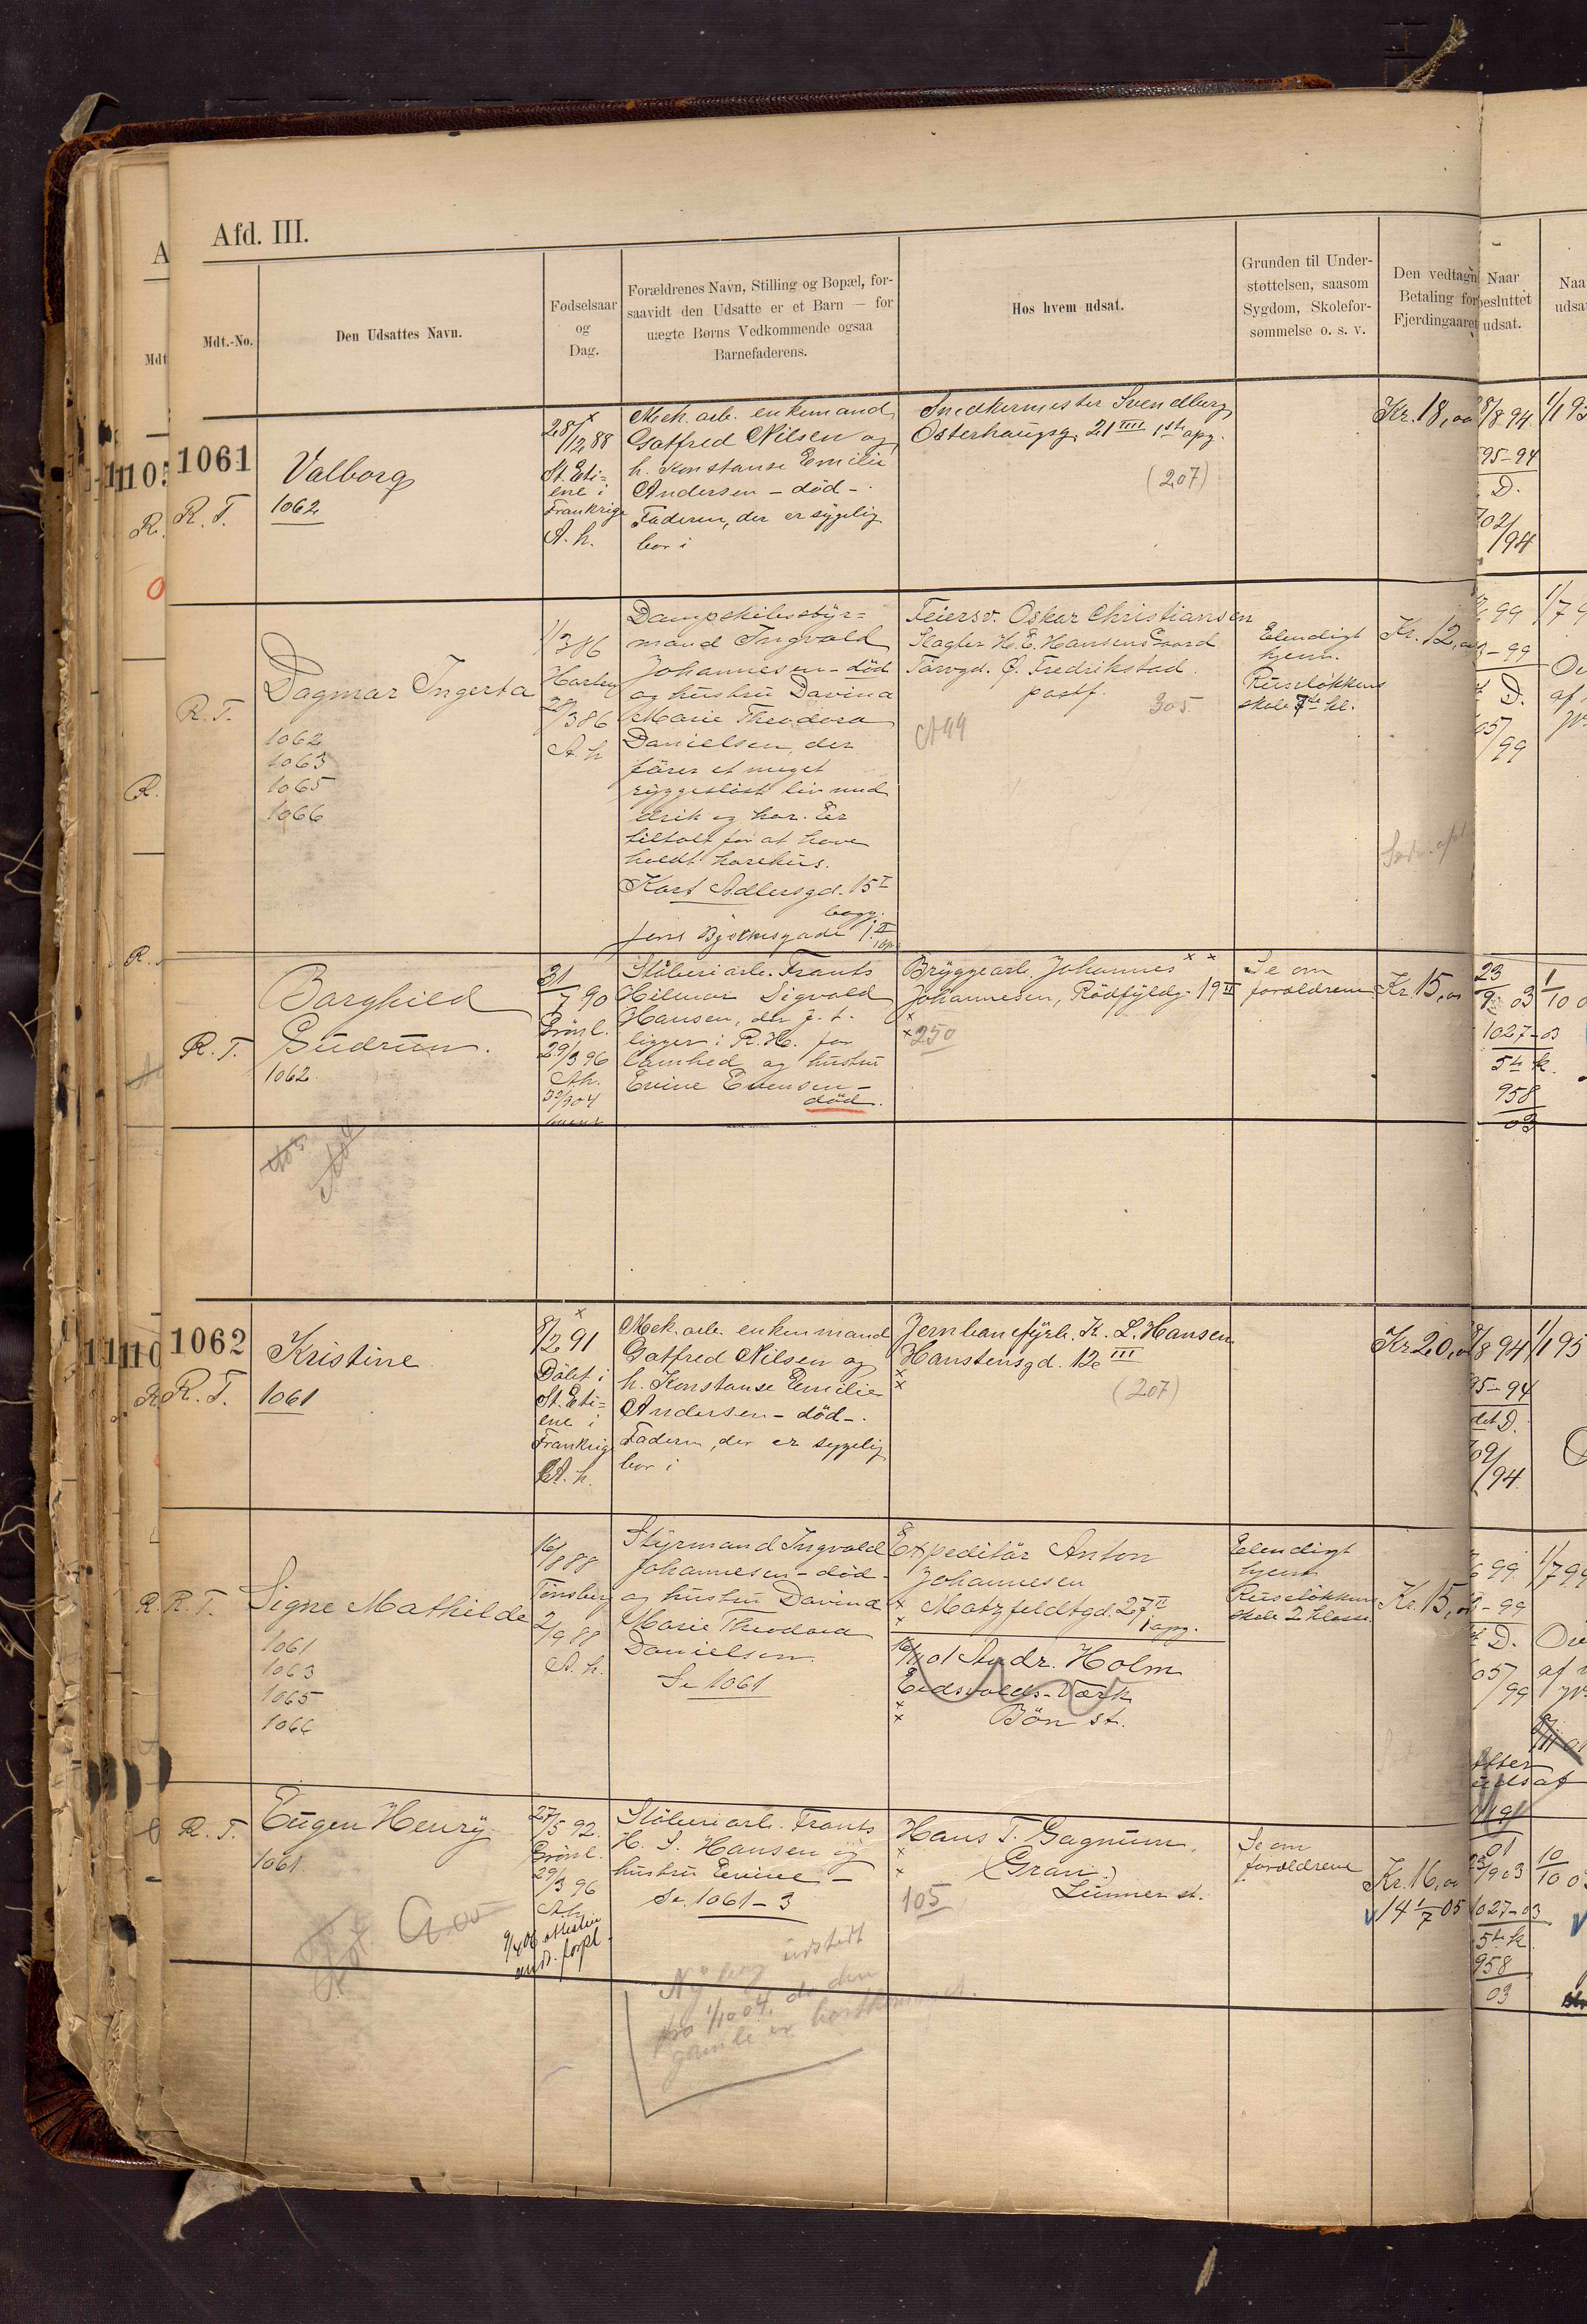 Afd. III.
Mdt.-No.
Den Udsattes Navn.
Fødselsaar
og
Dag.
Forældrenes Navn, Stilling og Bopæl, for-
saavidt den Udsatte er et Barn — for
uægte Børns Vedkommende ogsaa
Barnefaderens.
Hos hvem udsat.
Grunden til Under-
støttelsen, saasom
Sygdom, Skolefor-
sømmelse o. s. v.
Den vedtagn
Betaling for
Fjerdingaaret
Naar
besluttet
udsat.
Naa
udsat
1061
R. T.
Valborg
1062
28/12 88
St. Eti-
ene i
Frankrige
A. h.
Mek. arb. enkemand
Gotfred Nilsen og
h. Konstanse Emilie
Andersen - død -.
Faderen, der er sygelig
bor i
Snedkermester Svendberg
Osterhaugsg. 21 IIII 1ste opg.
(207)
Kr. 18,00
8/8 94
95-94
D.
702/94
R. T.
Dagmar Ingerta
1062
1063
1065
1066
1/3 86
Horten
28/3 86
A. h
Dampskibsstyr=
mand Ingvald
Johannesen - død
og hustru Davina
Marie Theodora
Danielsen, der
fører et meget
ryggesløst liv med
drik og hor. Er
tiltalt for at have
holdt horehus.
Kort Adlersgd. 15 I
bagg.
Jens Bjelkesgade 1 II
1 opg
Feiersv. Oskar Christiansen
Slagter H. E. Hansens Gaard
Torvgd. Ø. Fredrikstad
postf.
305
A99
Elendigt
hjem.
Ruseløkkens
skole 7de kl.
Kr. 12,00
99
3-99
D.
05/99
1/7 9
af
R. T.
Borghild
Gudrun.
1062
31/7 90
Grønl.
29/3 96
A.h.
30/3 04
Støberiarb. Frants
Hilmar Sigvald
Hansen, der p. t.
ligger i R. H. for
lamhed og hustru
Evine Evensen -
død.
Bryggearb. Johannes
Johannesen, Rødfyldg. 19 II
250
Se om
forældrene
Kr. 15,00
23/9 03
1/10 0
1027-03
5te k.
958
03
1062
R. T.
Kristine
1061
8/2 91
Døbt i
St. Eti=
ene i
Frankrige
A. h.
Mek. arb. enkemand
Gotfred Nilsen og
h. Konstanse Emilie
Andersen - død -.
Faderen, der er sygelig
bor i
Jernbanefyrb. K. L. Hansen
Hanstensgd. 12 III
(207)
Kr 20,00
8 94
1/1 95
95-94
det D.
702/94
R. T.
Signe Mathilde
1061
1063
1065
1066
16/8 88
Tønsberg
2/9 88
A. h.
Styrmand Ingvald
Johannesen - død -
og hustru Davina
Marie Theodora
Danielsen.
Se 1061
Expeditør Anton
Johannesen
Motzfeldtgd. 27 II
1 opg.
Andr. Holm
Eidsvolds-Værk
Bøn st.
Elendigt
hjem
Ruseløkkens
skole 2 klasse.
Kr. 15,00
99
1/7 99
3-99
D.
05/99
af
Efter
udsat
R. T.
Eugen Henry
1061
27/5 92.
Grønl.
29/3 96
A.h
Støberiarb. Frants
H. S. Hansen og
hustru Evine -
Se 1061-3
Hans T. Gagnum
(Gran.)
Lunner st.
105
Se om
forældrene
Kr. 16,00
14 1/7 05
23/9 03
10/10 0
1027-03
5te k
958
03
Ny udstedt
fra 1/10 04, da den
gamle er bortkommet.